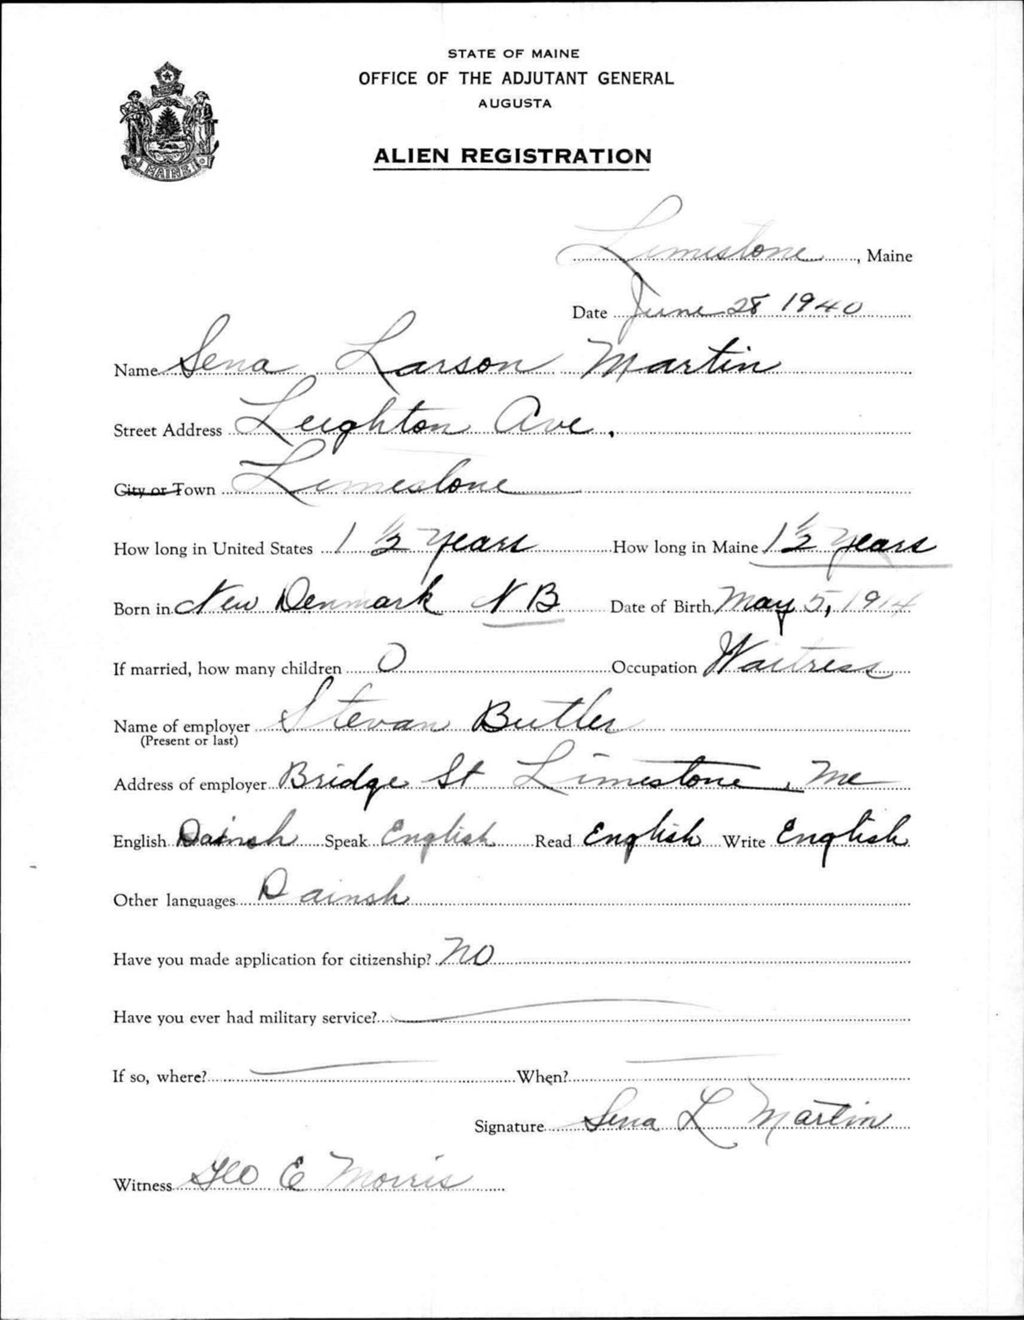 STATE OF MAINE
OFFICE OF THE ADJUTANT GENERAL
AUGUSTA
ALIEN REGISTRATION
MAINE
Limestone, Maine
Date June 28 1940
Name Sena Larson Martin
Street Address Leighton Ave.
City or Town Limestone
How long in United States 1 1/2 years How long in Maine 1 1/2 years
Born in New Denmark N B Date of Birth May 5, 1914
If married, how many children 0 Occupation Waitress
Name of employer Stevan Butler
(Present or last)
Address of employer Bridge St Limestone, Me
English Dainsh Speak English Read English Write English
Other languages Dainsh
Have you made application for citizenship? No
Have you ever had military service?
If so, where? When?
Signature Sena L Martin
Witness Geo E Morris